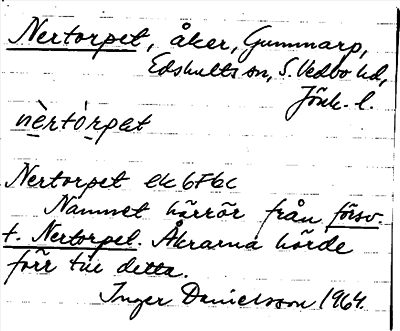 Nertorpet, åker, Gummarp,
Edshults sn, S. Vedbo hd,
Jönk. l.
nèrtòrpet
Nertorpet ek 6F6c
Namnet härrör från försv.
t. Nertorpet. Åkrarna hörde
förr till detta.
Inger Danielsson 1964.